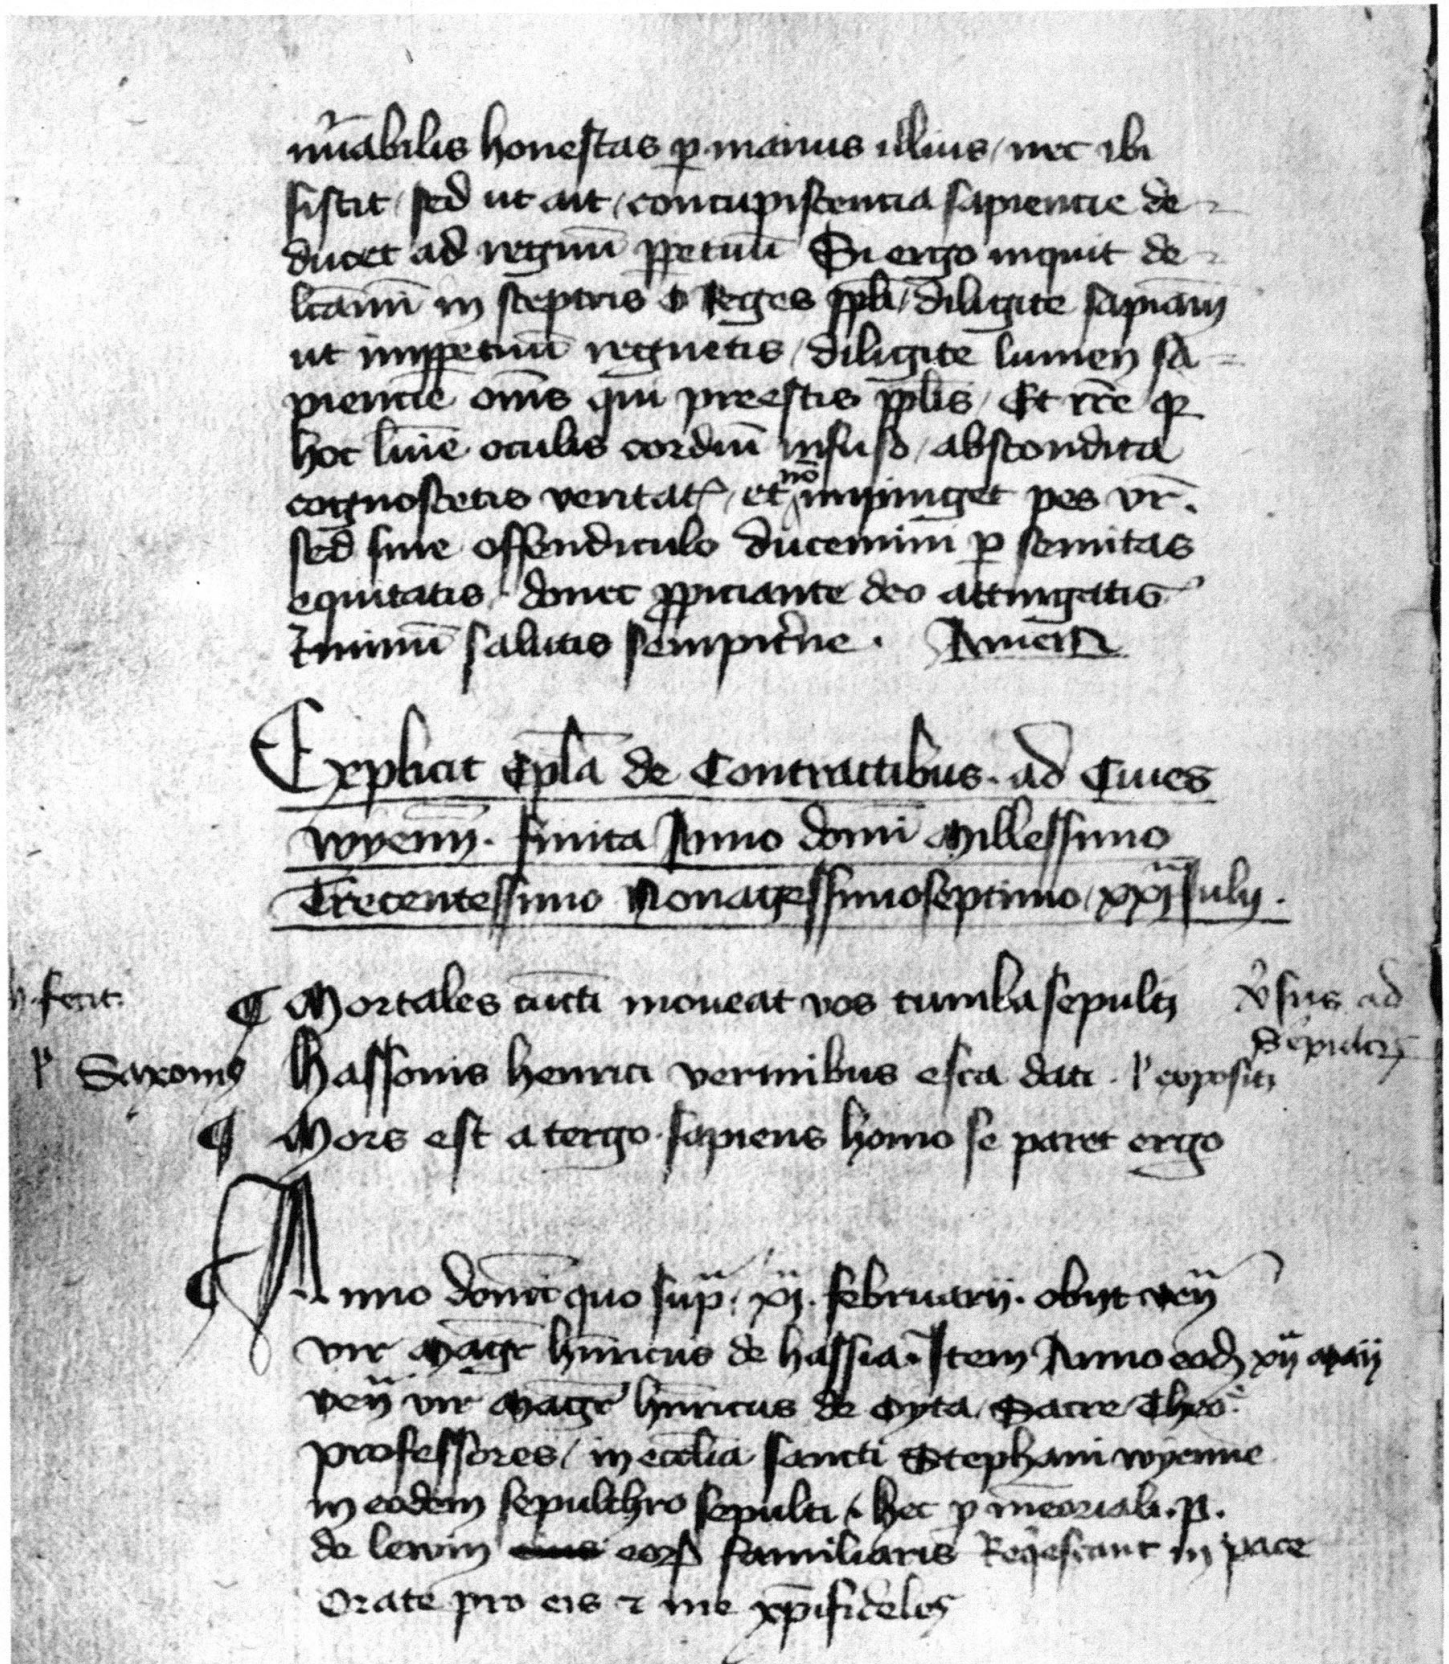 nu̅abilis honestas ꝑ manus illius / nec ibi
sistit / sed ut ait / concupiscencia sapiencie de-
ducet ad regnu̅ ꝑpetuu̅ Si ergo inquit de-
lc̅amini in sceptris o Reges ppl̅i / diligite sapia̅m
ut imꝑpetuu̅ regnetis / diligite lumen sa-
piencie om̅s qui preestis ppl̅is / Et rc̅e qꝛ
hoc lu̅ie oculis cordiu̅ infuso / abscondita
cognoscetis veritat̅ / et no̅ impinget pes vr̅.
sed sine offendiculo ducemini ꝑ semitas
equitatis / donec ꝓpiciante deo attingatis
t̅minu̅ salutis sempit̅ne . Amen
Explicit Ep̅la de Contractibus . ad Ciues
wyenn̅ . finita Anno domi̅ Millessimo
Trecentessimo Nonagessimoseptimo / xxj Julij .
fecit.
¶ Mortales cuncti moueat vos tumba sepulti v̅sus ad
sepulcr̅
Saxonis Hassonis henrici vermibus esca dati . expositi
¶ Mors est a tergo . sapiens homo se paret ergo
¶ Anno domi̅ quo sup̅ . xj . februarij . obijt ven̅
vir Mag̅r hn̅ricus de hassia . Item Anno eod̅ xij maij
ven̅ vir Mag̅r hn̅ricus de Oyta / Sacre Theo̅.
professores / in eccl̅ia sancti Stephani wyenne
in eodem sepulchro sepulti / hec ꝓ me̅oriali . p.
de lewin eoꝝ familiaris Req̅escant in pace
Orate pro eis ⁊ me xp̅ifideles